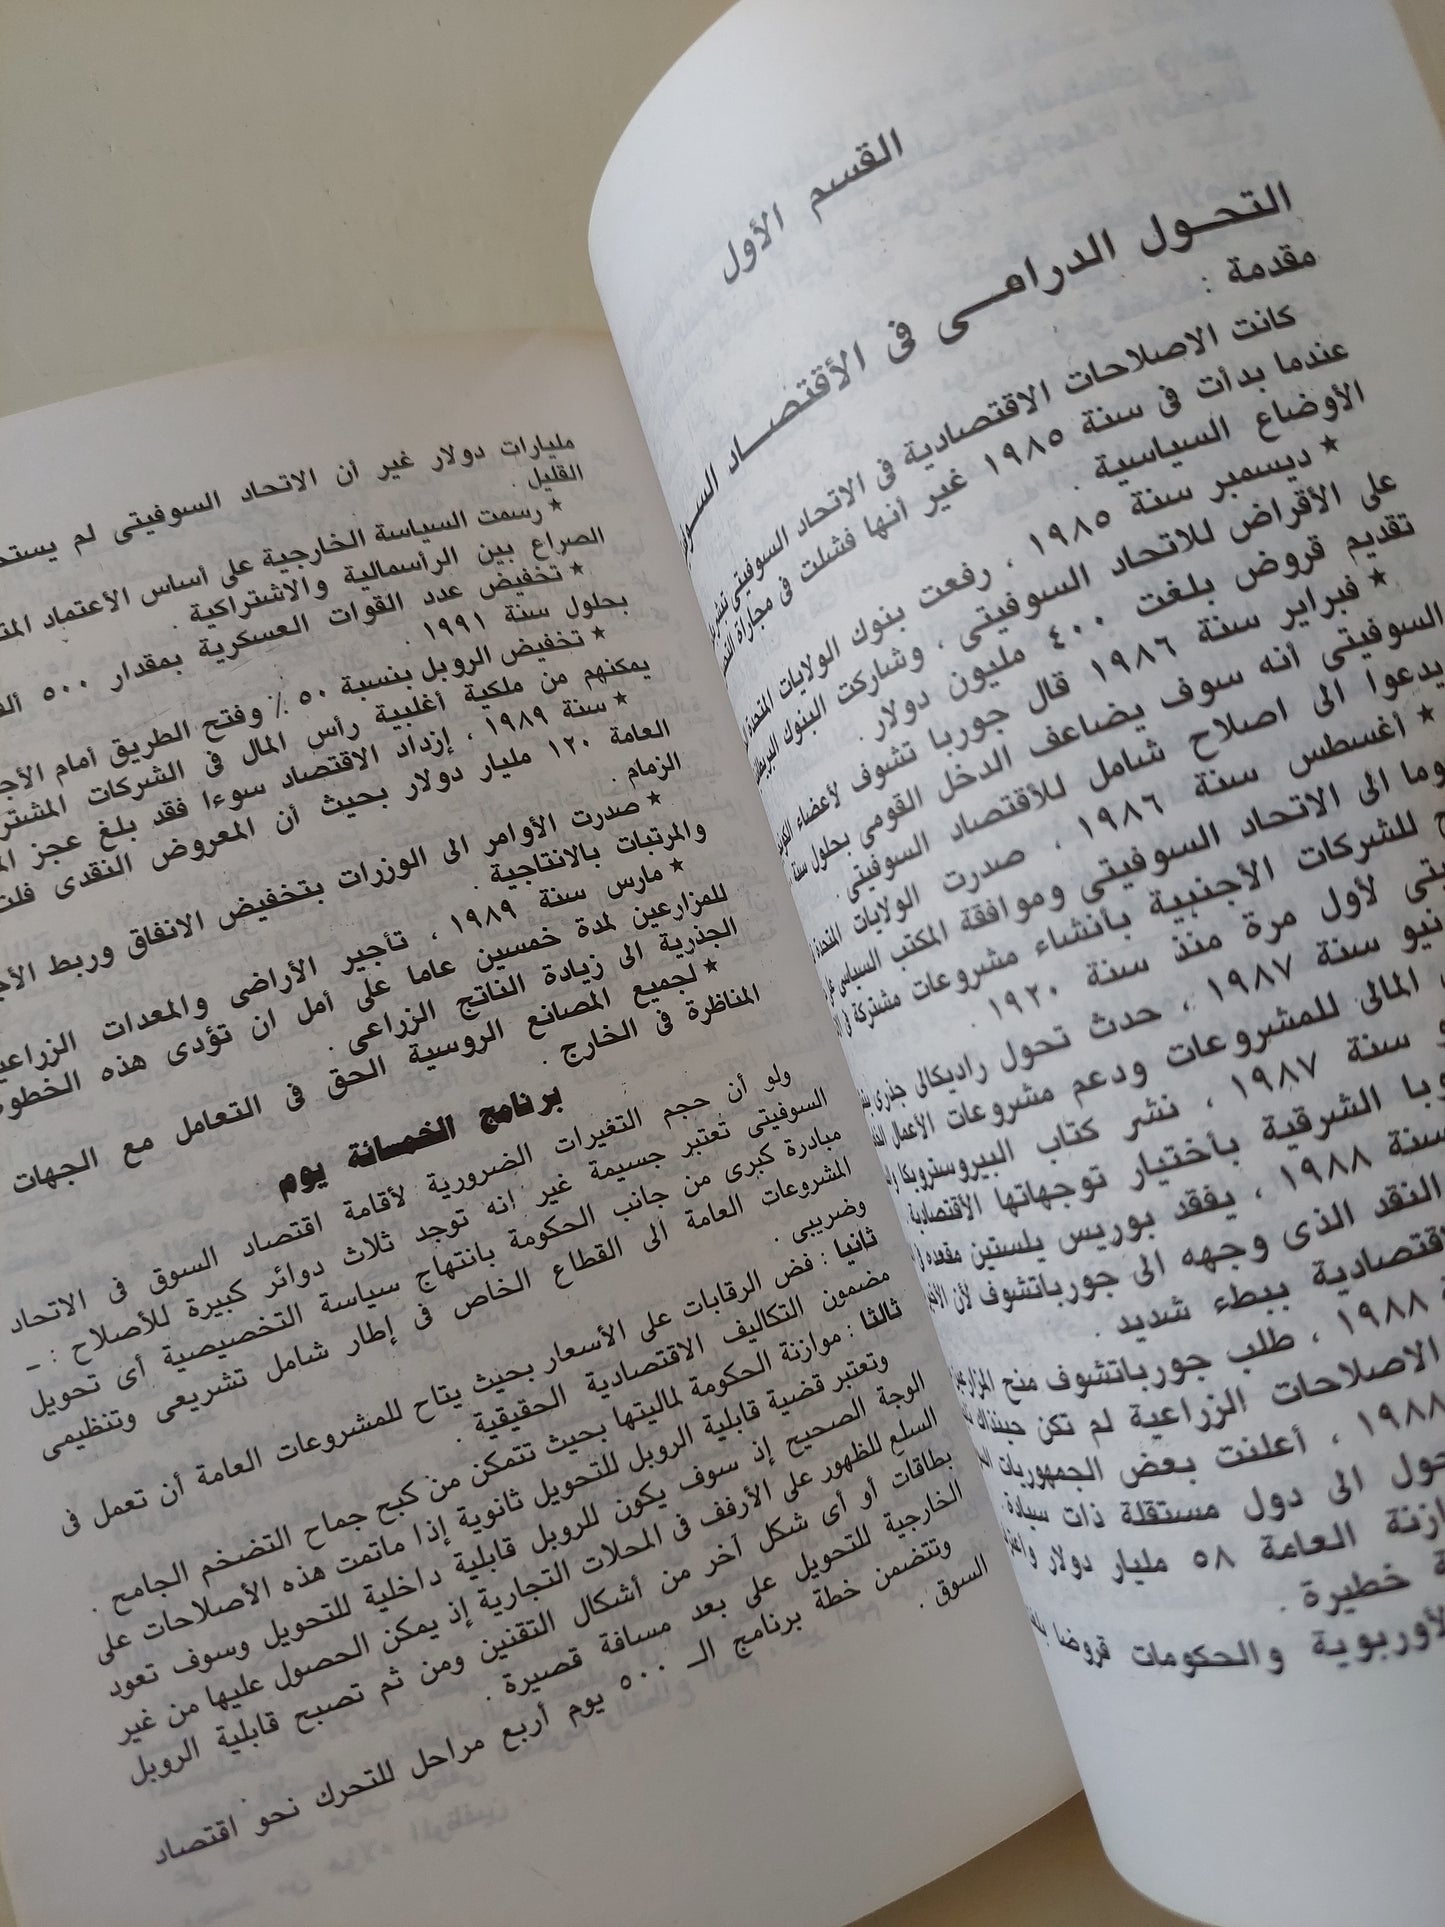 القسم الأول
التحـول الدرامـى فى الأقتصـاد
مقدمة :
كانت الاصلاحات الاقتصادية فى الاتحاد السوفيتى
عندما بدأت فى سنة ١٩٨٥ غير أنها فشلت فى مجاراة
الأوضاع السياسية .
★ ديسمبر سنة ١٩٨٥ ، رفعت بنوك الولايات المتحدة
على الأقراض للاتحاد السوفيتى ، وشاركت البنوك
تقديم قروض بلغت ٤٠٠ مليون دولار .
★ فبراير سنة ١٩٨٦ قال جوربا تشوف لأعضاء
السوفيتى أنه سوف يضاعف الدخل القومى بحلول سنة
يدعوا الى اصلاح شامل للأقتصاد السوفيتى .
★ أغسطس سنة ١٩٨٦ ، صدرت الولايات المتحدة
الى الاتحاد السوفيتى وموافقة المكتب السياسى
للشركات الأجنبية بأنشاء مشروعات مشتركة فى
لأول مرة منذ سنة ١٩٢٠ .
سنة ١٩٨٧ ، حدث تحول راديكالى جذرى
المالى للمشروعات ودعم مشروعات الأعمال
سنة ١٩٨٧ ، نشر كتاب البيروسترويكا
الشرقية بأختيار توجهاتها الأقتصادية .
سنة ١٩٨٨ ، يفقد بوريس يلستين مقعده فى
النقد الذى وجهه الى جورباتشوف لأن
ببطء شديد .
١٩٨٨ ، طلب جورباتشوف منح
الاصلاحات الزراعية لم تكن
١٩٨٨ ، أعلنت بعض الجمهوريات
الى دول مستقلة ذات سيادة .
العامة ٥٨ مليار دولار
خطيرة .
والحكومات قروضا
مليارات دولار غير أن الاتحاد السوفيتى لم
القليل .
★ رسمت السياسة الخارجية على أساس الأعتماد
الصراع بين الرأسمالية والاشتراكية .
★ تخفيض عدد القوات العسكرية بمقدار ٥٠٠
بحلول سنة ١٩٩١ .
★ تخفيض الروبل بنسبة ٥٠ ٪ وفتح الطريق أمام
يمكنهم من ملكية أغلبية رأس المال فى الشركات
★ سنة ١٩٨٩ ، إزداد الاقتصاد سوءا فقد بلغ عجز
العامة ١٢٠ مليار دولار بحيث أن المعروض النقدى
الزمام .
★ صدرت الأوامر الى الوزرات بتخفيض الانفاق وربط
والمرتبات بالانتاجية .
★ مارس سنة ١٩٨٩ ، تأجير الأراضى والمعدات
للمزارعين لمدة خمسين عاما على أمل ان تؤدى هذه
الجذرية الى زيادة الناتج الزراعى .
★ لجميع المصانع الروسية الحق فى التعامل مع الجهات
المناظرة فى الخارج .
برنامج الخمسائة يوم
ولو أن حجم التغيرات الضرورية لأقامة اقتصاد السوق فى الاتحاد
السوفيتى تعتبر جسيمة غير انه توجد ثلاث دوائر كبيرة للأصلاح : ـ
مبادرة كبرى من جانب الحكومة بانتهاج سياسة التخصيصية أى تحويل
المشروعات العامة الى القطاع الخاص فى إطار شامل تشريعى وتنظيمى
وضريبى .
ثانيا : فض الرقابات على الأسعار بحيث يتاح للمشروعات العامة أن تعمل فى
مضمون التكاليف الاقتصادية الحقيقية .
ثالثا : موازنة الحكومة لماليتها بحيث تتمكن من كبح جماح التضخم الجامح .
وتعتبر قضية قابلية الروبل للتحويل ثانوية إذا ماتمت هذه الأصلاحات على
الوجة الصحيح إذ سوف يكون للروبل قابلية داخلية للتحويل وسوف تعود
السلع للظهور على الأرفف فى المحلات التجارية إذ يمكن الحصول عليها من غير
بطاقات أو أى شكل آخر من أشكال التقنين ومن ثم تصبح قابلية الروبل
الخارجية للتحويل على بعد مسافة قصيرة .
وتتضمن خطة برنامج الـ ٥٠٠ يوم أربع مراحل للتحرك نحو اقتصاد
السوق .